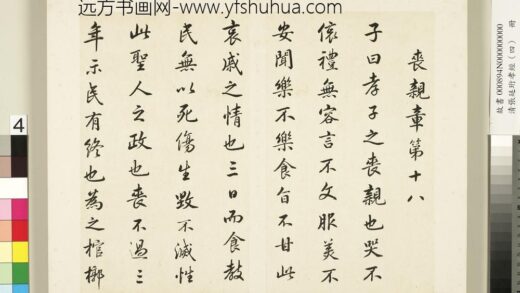 远方书画网- www.yfshuhua.com
喪親章第十八
子曰孝子之喪親也哭不
偯禮無容言不文服美不
安聞樂不樂食旨不甘此
哀戚之情也三日而食教
民無以死傷生毀不滅性
此聖人之政也喪不過三
年示民有終也為之棺槨
故書 000894N000000000
清張廷珩孝經（四） 冊
4